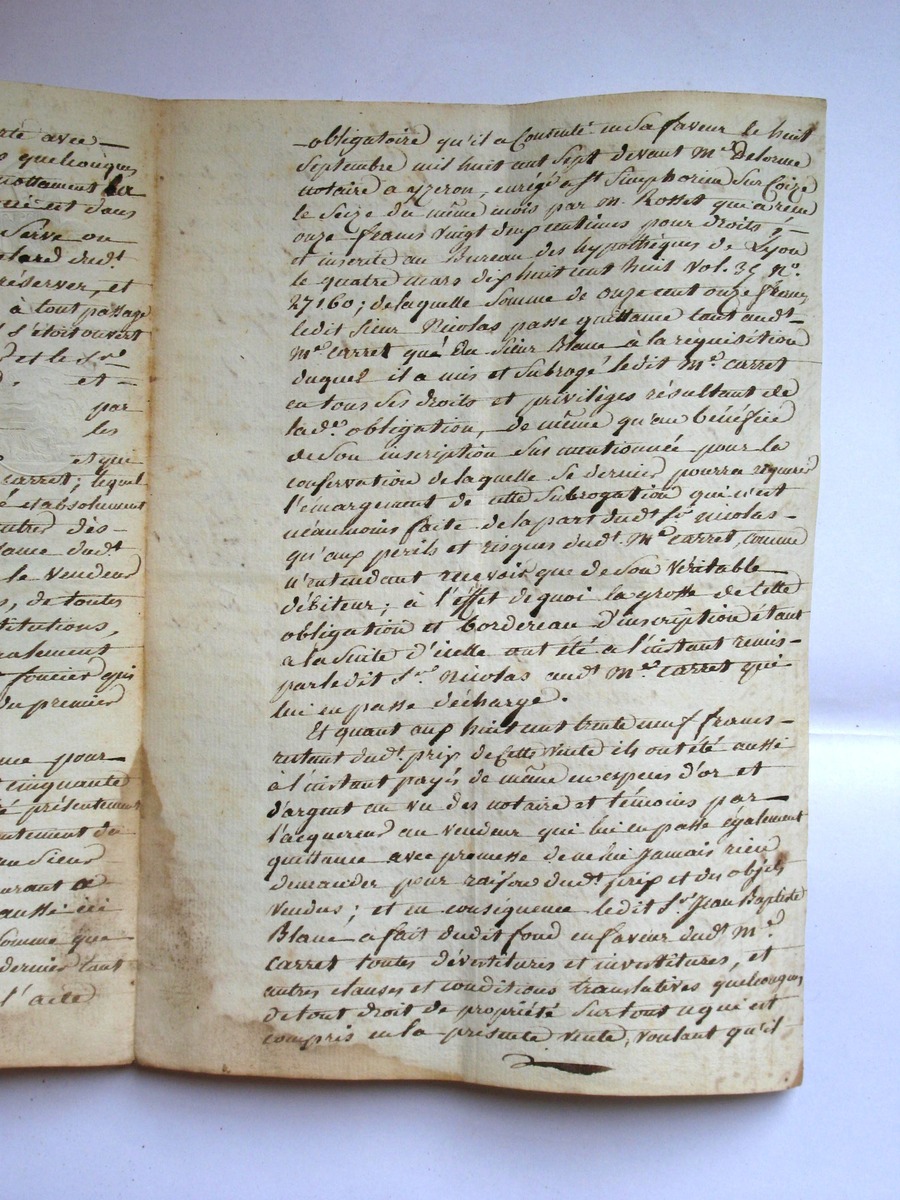 rte avec
s quelconques
nottament la
né est dans
Serve ou
lard dud.t
réserver, et
à tout passage
s'étoit ouvert
et le S.r
et
par
les
et qui
Carret; lequel
é et absolument
autres dès-
dame dud.t
le Vendeur
s, de toutes
stitutions,
galement
foncier qui
du premier
nce pour
t cinquante
té présentement
entement du
au Sieur
aussi ici
Somme que
dernier tant
l'acte
obligatoire qu'il a Consenti en sa faveur le huit
Septembre mil huit cent Sept devant M.e Delorme
notaire a yzeron, enrég.é a S.t Simphorien Sur Coize
le Seize du même mois par M. Rosset qui a reçu
onze francs vingt deux centimes pour droits, &
et inscrite au Bureau des hypothèques de Lyon
le quatre mars dix huit cent huit Vol. 35 N.o
27160; de laquelle Somme de onze cent onze francs
ledit Sieur Nicolas passe quittance tant aud.t
M.e Carret qu'é du Sieur Blanc à la réquisition
duquel il a mis et Subrogé ledit M.e Carret
en tous Ses droits et priviliges résultant de
lad.e obligation, de même qu'au bénéfice
de Son inscription Sus mentionnée pour la
conservation de laquelle Se dernier pourra requérir
l'émargement de cette Subrogation qui n'est
néaumoins faite de la part dud.t S.r Nicolas-
qu'aux périls et risques dud.t M.e Carret, comme
n'entendant recevoir que de Son Véritable
débiteur; à l'effet de quoi la grosse de cette
obligation et bordereau d'inscription étant
a la Suite d'icelle ont été a l'instant remis
par ledit S.r Nicolas aud.t M.e Carret qui
lui en passe décharge.
Et quant aux huit cent trente neuf francs-
restant dud.t prix de Cette Vente ils ont été aussi
à l'instant payés de même en especes d'or et
d'argent au vu des notaire et témoins par
l'acquereur au Vendeur qui lui en passe également
quittance avec promesse de ne lui Jamais rien
demander pour raison dud.t prix et des objets
Vendus; et en conséquence ledit S.r Jean Baptiste
Blanc a fait dudit fond en faveur dud.t M.e
Carret toutes dévestitures et investitures, et
autres clauses et conditions translatives quelconques
de tout droit de propriété Sur tout ce qui est
compris en la présente Vente, voulant qu'il